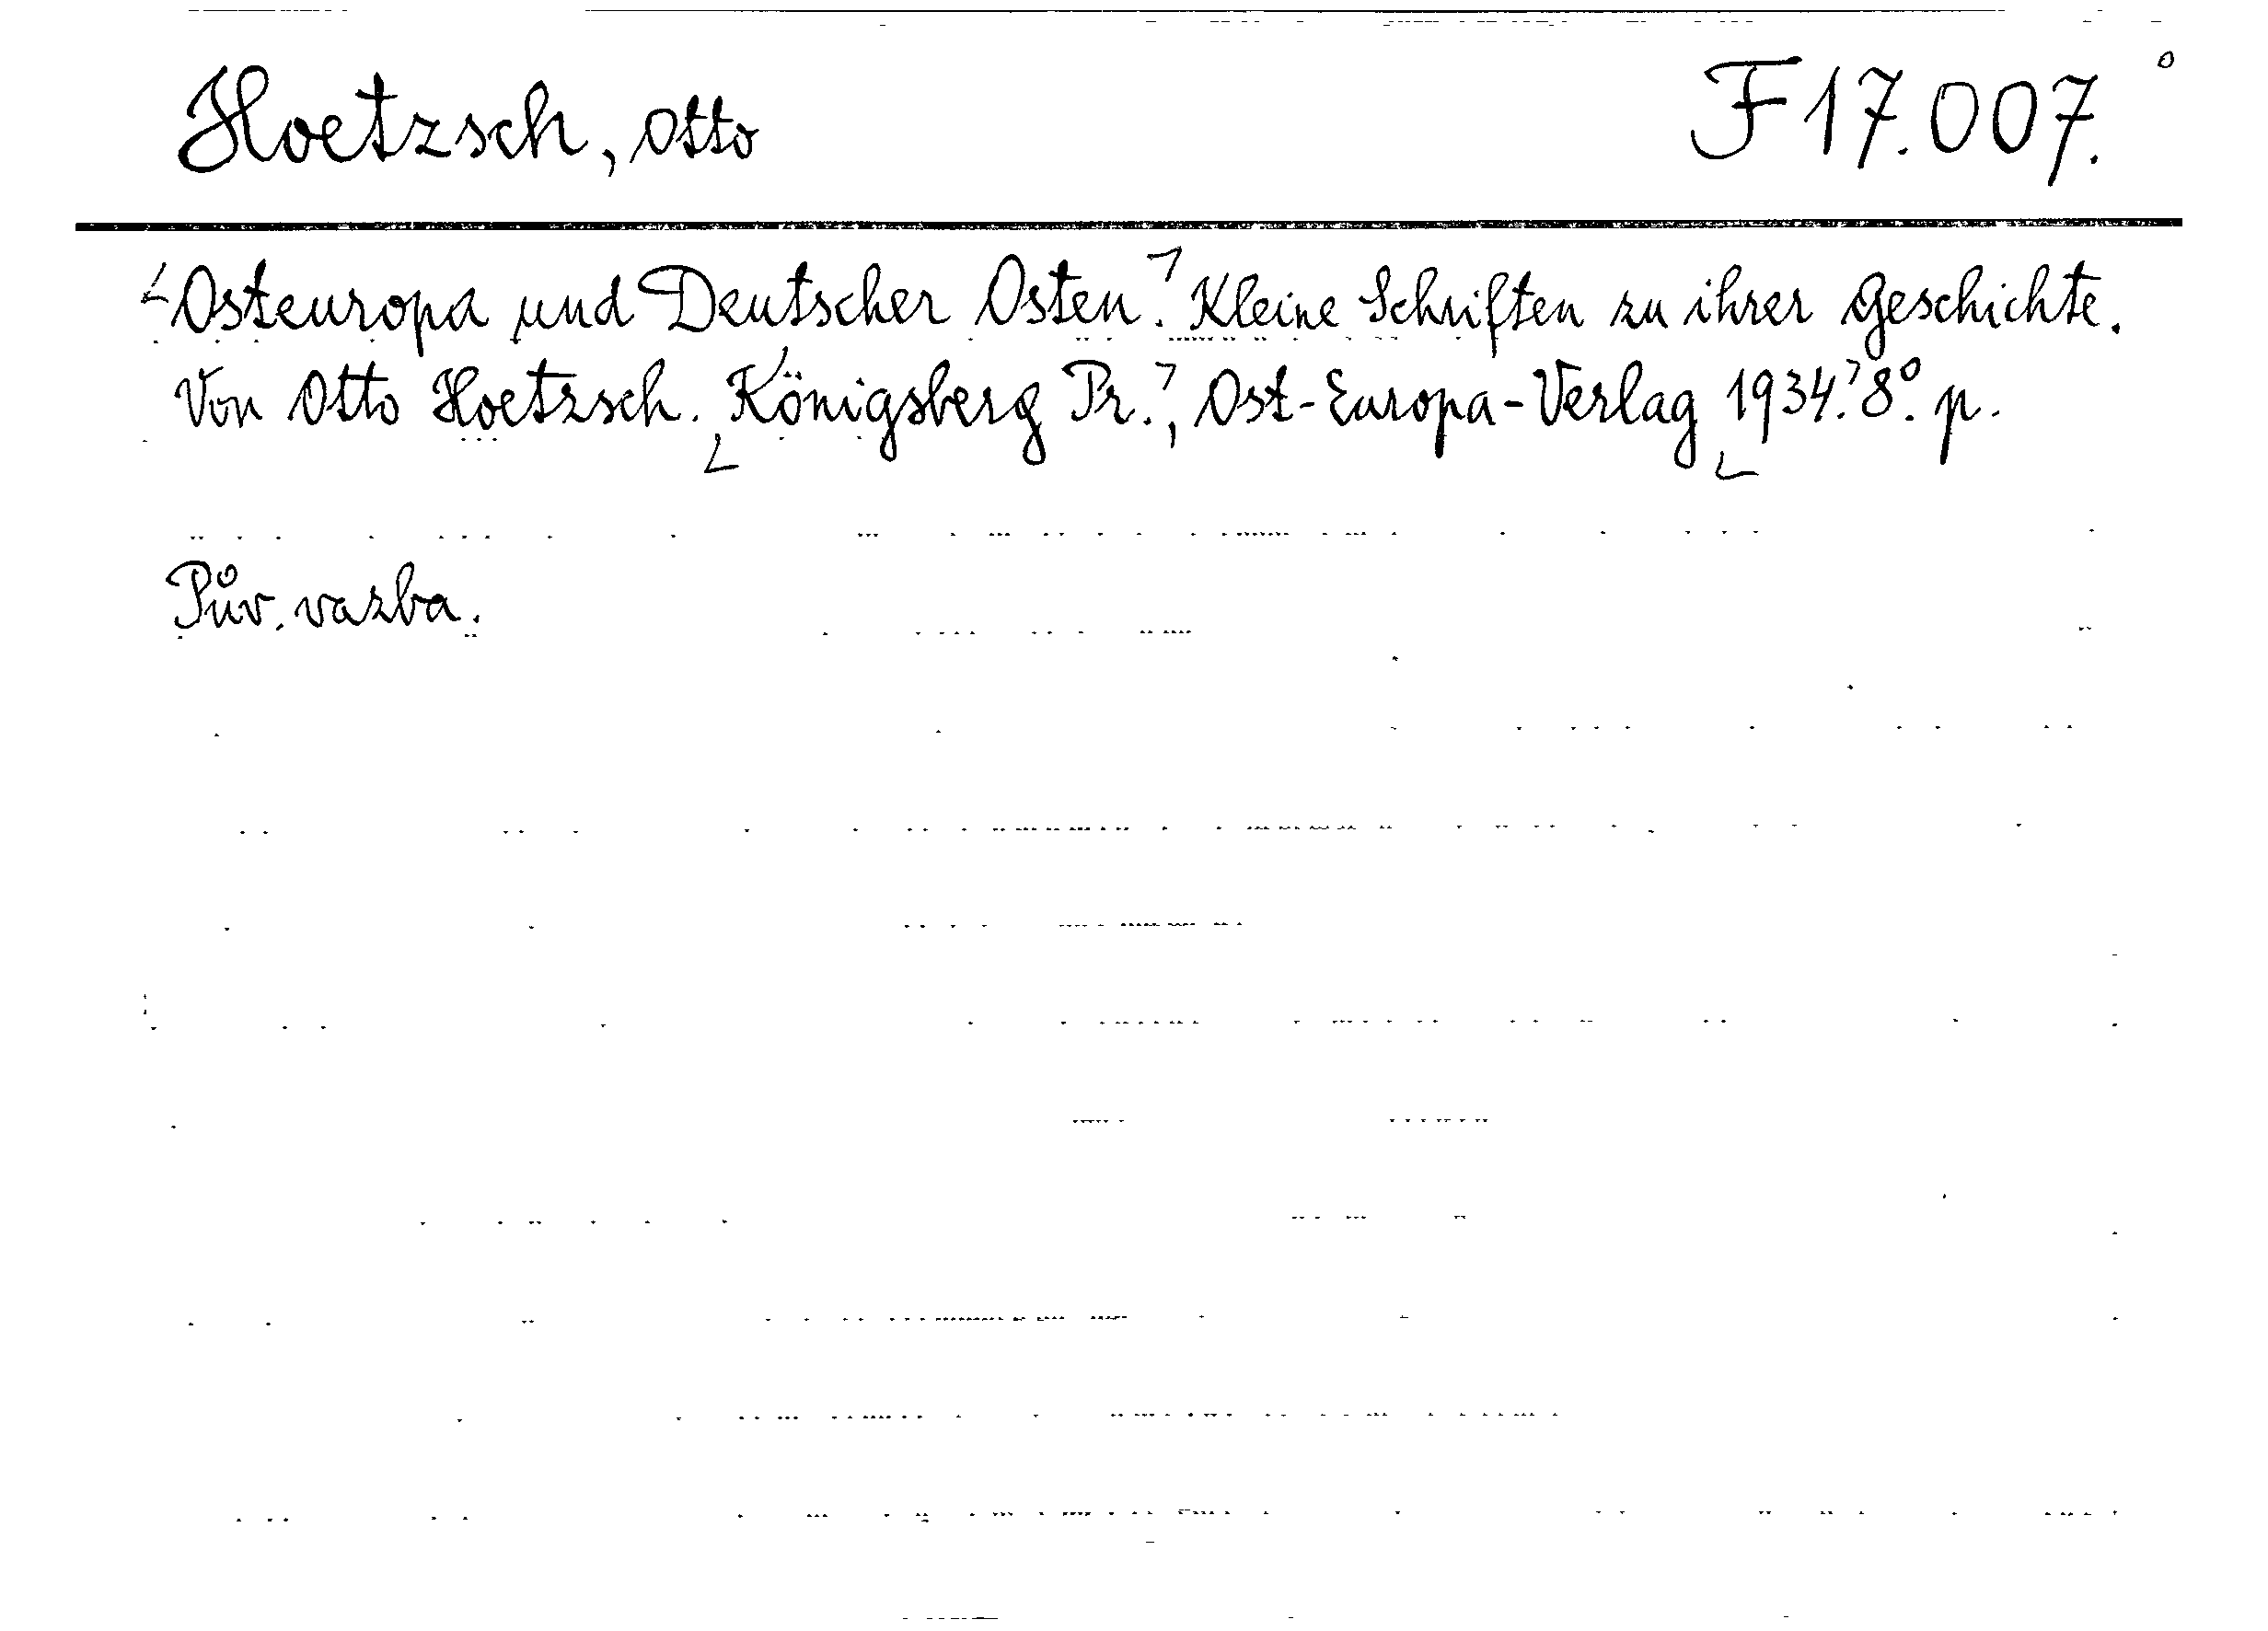 Hoetzsch, Otto F 17.007.
Osteuropa und Deutscher Osten. Kleine Schriften zu ihrer Geschichte.
Von Otto Hoetzsch. Königsberg Pr., Ost-Europa-Verlag 1934. 8°. p.
Pův. vazba.